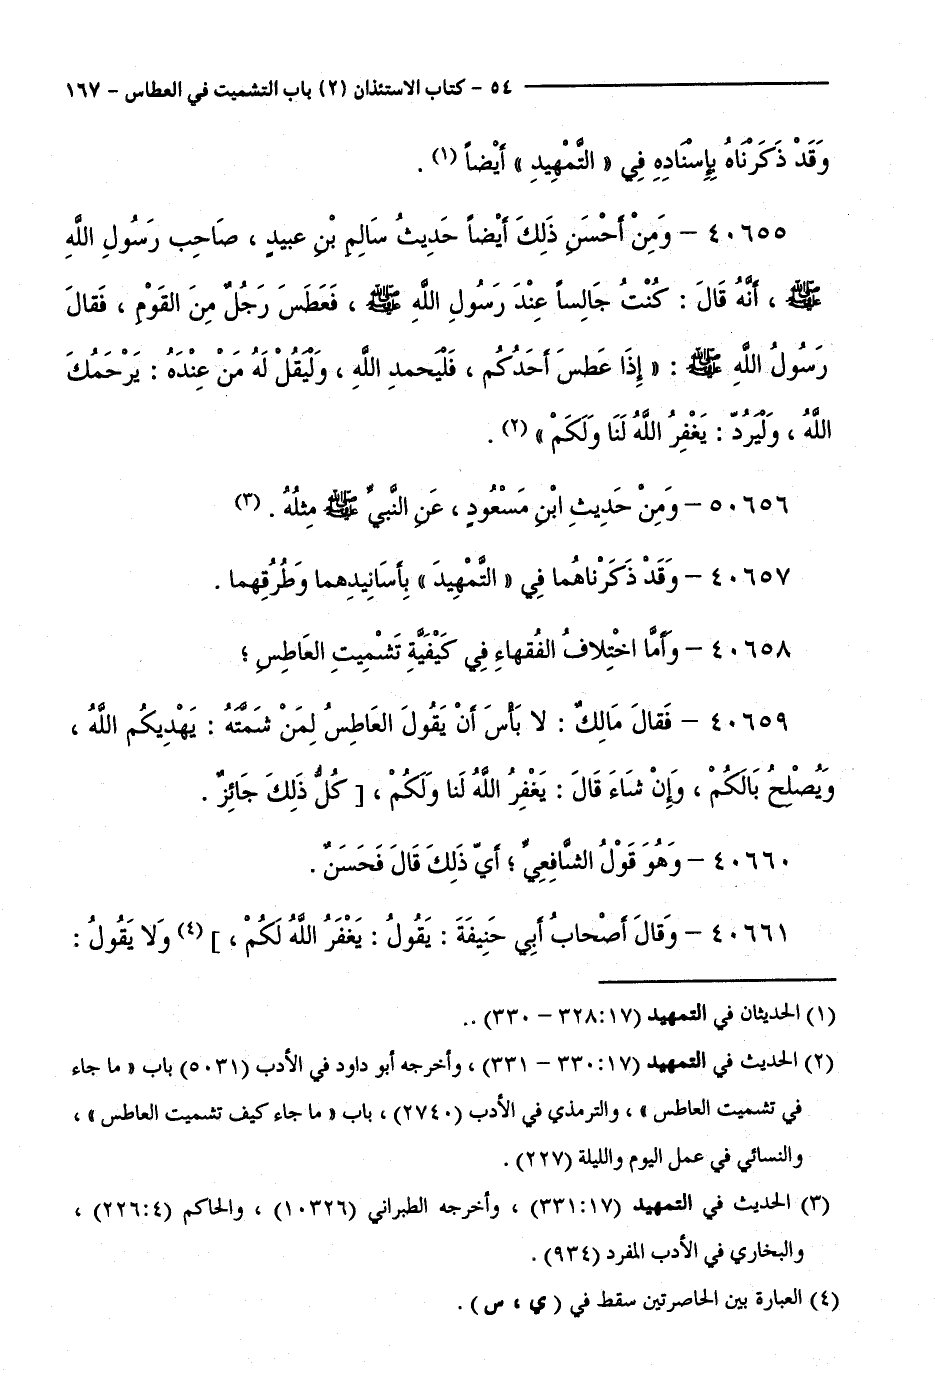 ٥٤ - كتاب الاستئذان (٢) باب التشميت في العطاس - ١٦٧
وَقَدْ ذَكَرْنَاهُ بِإِسْنَادِهِ فِي « التَّمْهِيدِ » أَيْضاً (١) .
٤٠٦٥٥ – وَمِنْ أَحْسَنِ ذَلِكَ أَيْضاً حَدِيثُ سَالِمِ بْنِ عبيدٍ ، صَاحِب رَسُولِ اللَّهِ
ﷺ ، أَنَّهُ قَالَ : كُنْتُ جَالِساً عِنْدَ رَسُولِ اللَّهِ ﷺ ، فَعَطَسَ رَجُلٌ مِنَ القَوْمِ ، فَقالَ
رَسُولُ اللَّهِ ﷺ : « إِذَا عَطسَ أَحَدُكُم ، فَلْيَحمدِ اللَّه ، وَلْيَقُلْ لَهُ مَنْ عِنْدَهُ : يَرْحَمُكَ
اللَّهُ ، وَلْيَرُدّ : يَغْفِرُ اللَّهُ لَنَا وَلَكَمْ » (٢) .
٥٠٦٥٦ – وَمِنْ حَدِيثِ ابْنِ مَسْعُودٍ ، عَنِ النَّبيِّ ﷺ مِثلُهُ . (٣)
٤٠٦٥٧ – وَقَدْ ذَكَرْناهُما فِي « التَّمْهِيدَ » بِأَسَانِيدِهما وَطُرُقِهما .
٤٠٦٥٨ – وَأَمَّا اخْتِلافُ الفُقهاءِ فِي كَيْفَيَّةِ تَشْمِيتِ العَاطِسِ ؛
٤٠٦٥٩ – فَقالَ مَالِكٌ : لا بَأْسَ أَنْ يَقُولَ العَاطِسُ لِمَنْ شَمَّتَهُ : يَهْدِيكُم اللَّهُ ،
وَيُصْلِحُ بَالَكُمْ ، وَإِنْ شاءَ قَالَ : يَغْفِرُ اللَّهُ لَنا ولَكُمْ ، [ كُلُّ ذَلِكَ جَائِزٌ .
٤٠٦٦٠ – وَهُوَ قَوْلُ الشَّافِعِيِّ ؛ أَيّ ذَلِكَ قَالَ فَحَسَنٌ .
٤٠٦٦١ – وَقالَ أَصْحابُ أَبِي حَنِيفَةَ : يَقُولُ : يَغْفَرُ اللَّهُ لَكُمْ ، ] (٤) وَلا يَقُولُ :
(١) الحديثان في التمهيد (١٧:٣٢٨ – ٣٣٠) ..
(٢) الحديث في التمهيد (١٧:٣٣٠ – ٣٣١) ، وأخرجه أبو داود في الأدب (٥٠٣١) باب « ما جاء
في تشميت العاطس » ، والترمذي في الأدب (٢٧٤٠) ، باب « ما جاء كيف تشميت العاطس » ،
والنسائي في عمل اليوم والليلة (٢٢٧) .
(٣) الحديث في التمهيد (١٧:٣٣١) ، وأخرجه الطبراني (١٠٣٢٦) ، والحاكم (٤:٢٢٦) ،
والبخاري في الأدب المفرد (٩٣٤) .
(٤) العبارة بين الحاصرتين سقط في ( ي ، س ) .